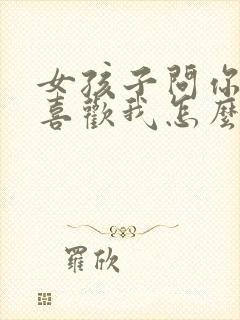 女孩子問你
喜歡我怎麼
羅欣